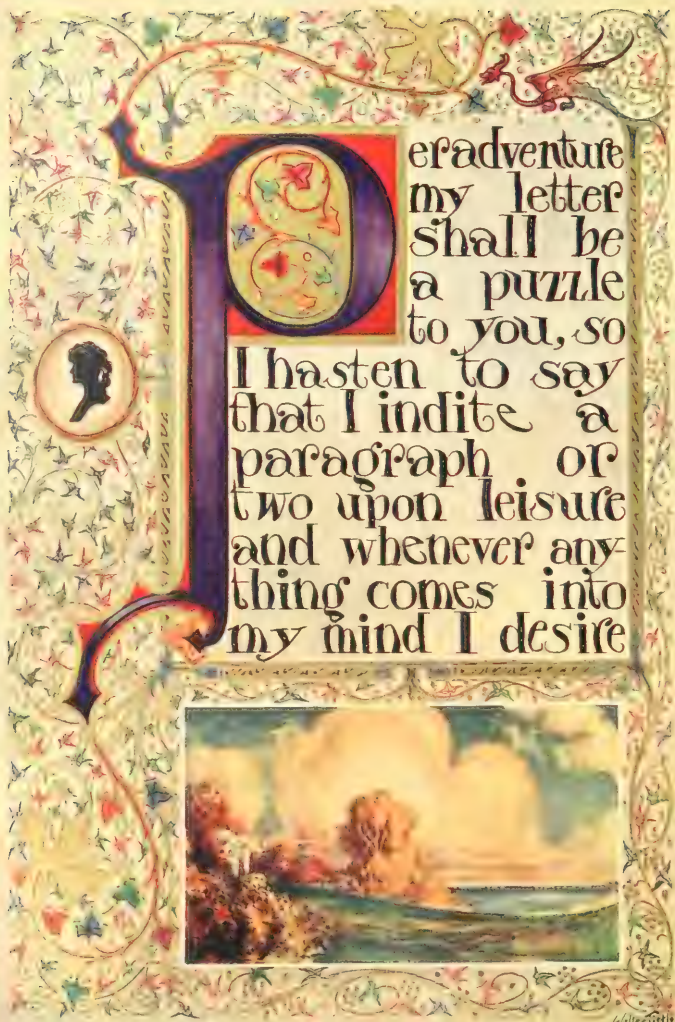 Peradventure
my letter
shall be
a puzzle
to you, so
I hasten to say
that I indite a
paragraph or
two upon leisure
and whenever any-
thing comes into
my mind I desire